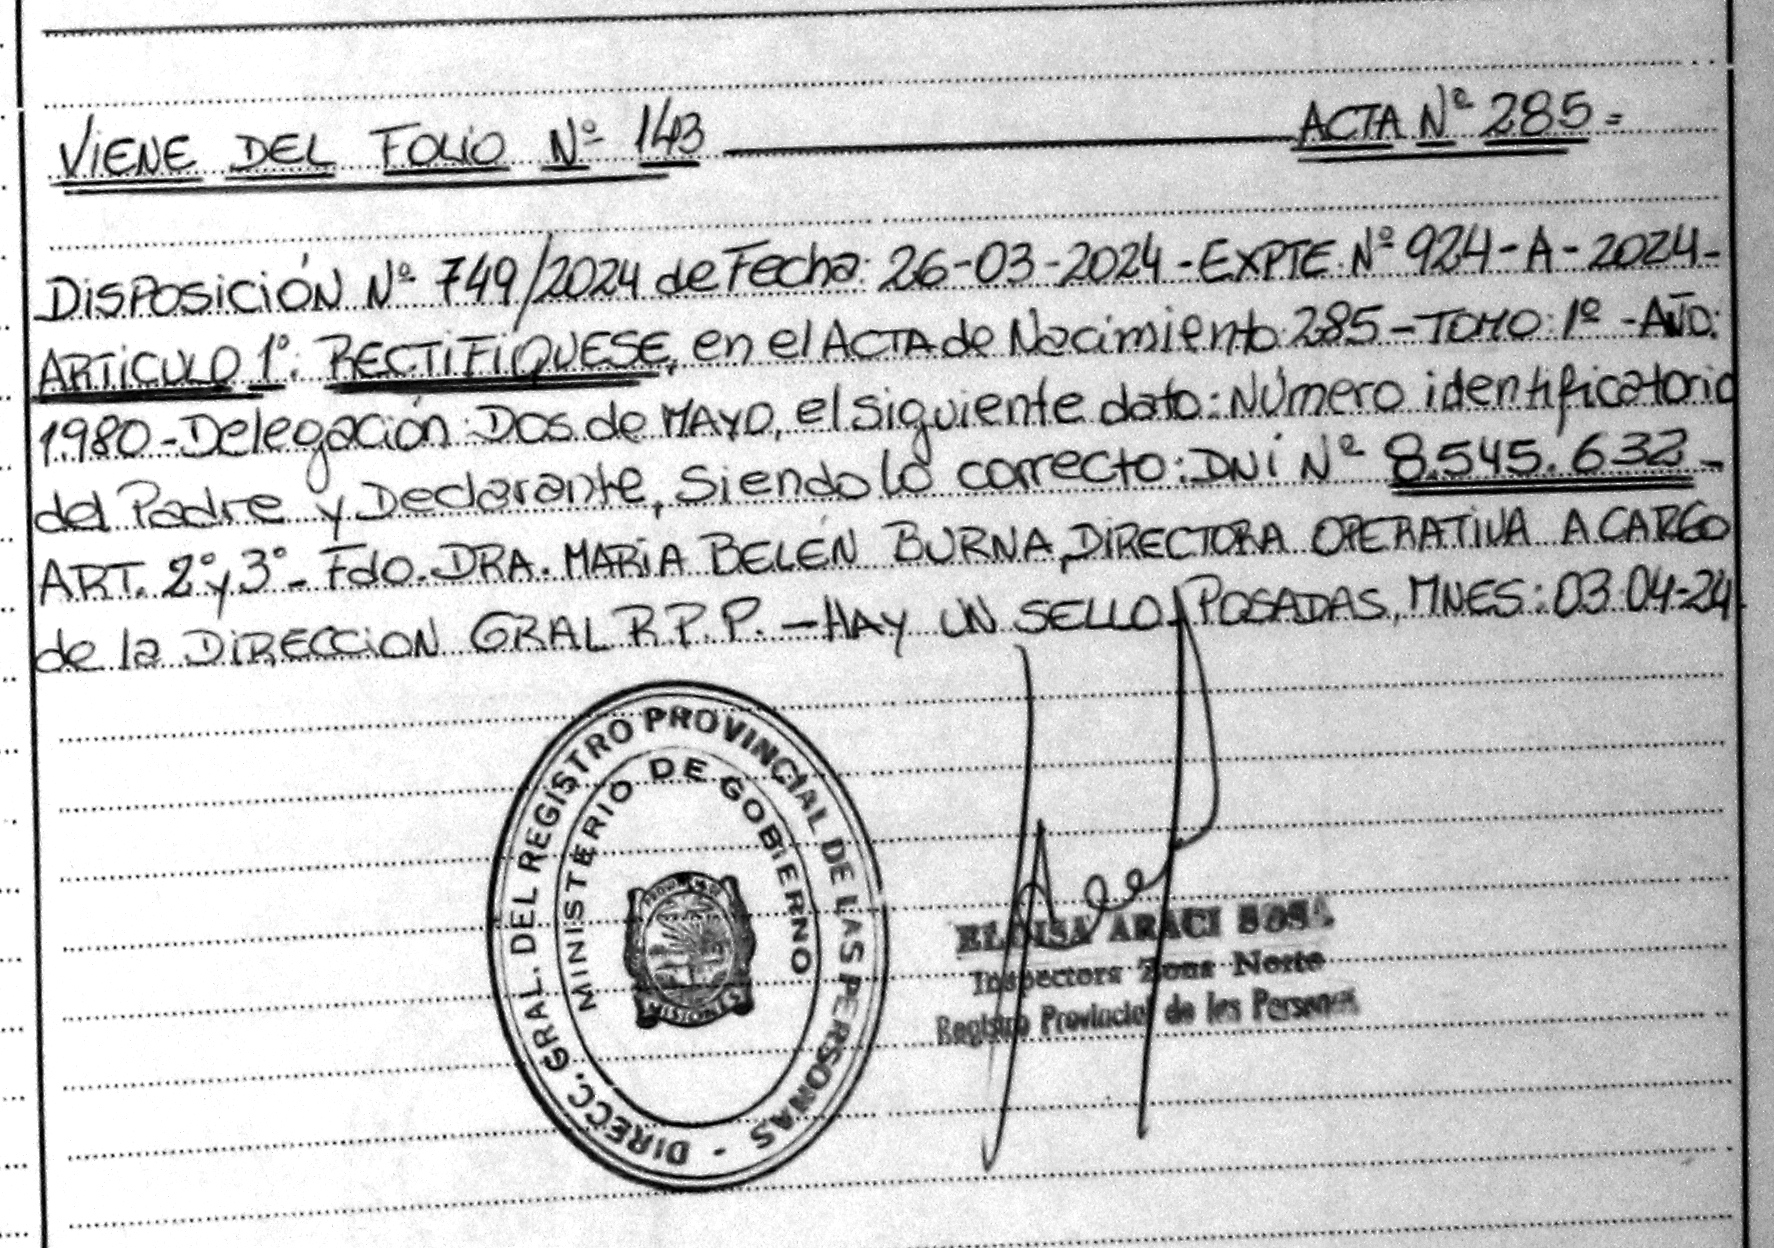 VIENE DEL FOLIO Nº 143 ACTA Nº 285=
DISPOSICIÓN Nº 749/2024 de Fecha: 26-03-2024-EXPTE Nº 924-A-2024-
ARTICULO 1º: RECTIFIQUESE, en el ACTA de Nacimiento 285-TOMO:1º-AÑO:
1980-Delegación DOS de MAYO, el siguiente dato: Número identificatorio
del Padre y Declarante, siendo lo correcto: DNI Nº 8.545.632-
ART. 2º y 3º- Fdo. DRA. MARIA BELÉN BURNA, DIRECTORA OPERATIVA A CARGO
de la DIRECCION GRAL R.P.P. - HAY UN SELLO. POSADAS, MNES: 03-04-24.
DIRECC. GRAL. DEL REGISTRO PROVINCIAL DE LAS PERSONAS -
MINISTERIO DE GOBIERNO
ELOISA ARACI SOSA
Inspectora Zona Norte
Registro Provincial de las Personas